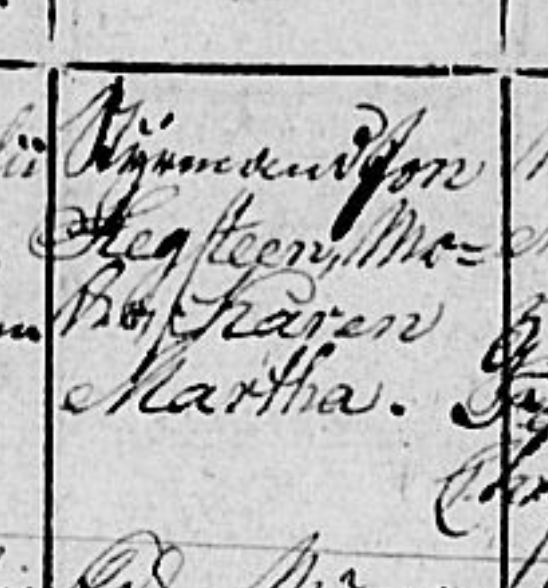 Styrmand Jon
Hegsteen, Mo=
der, Karen
Martha.